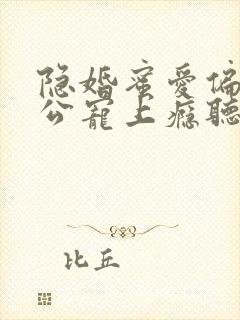 隐婚蜜爱偏
公宠上瘾聽
比丘